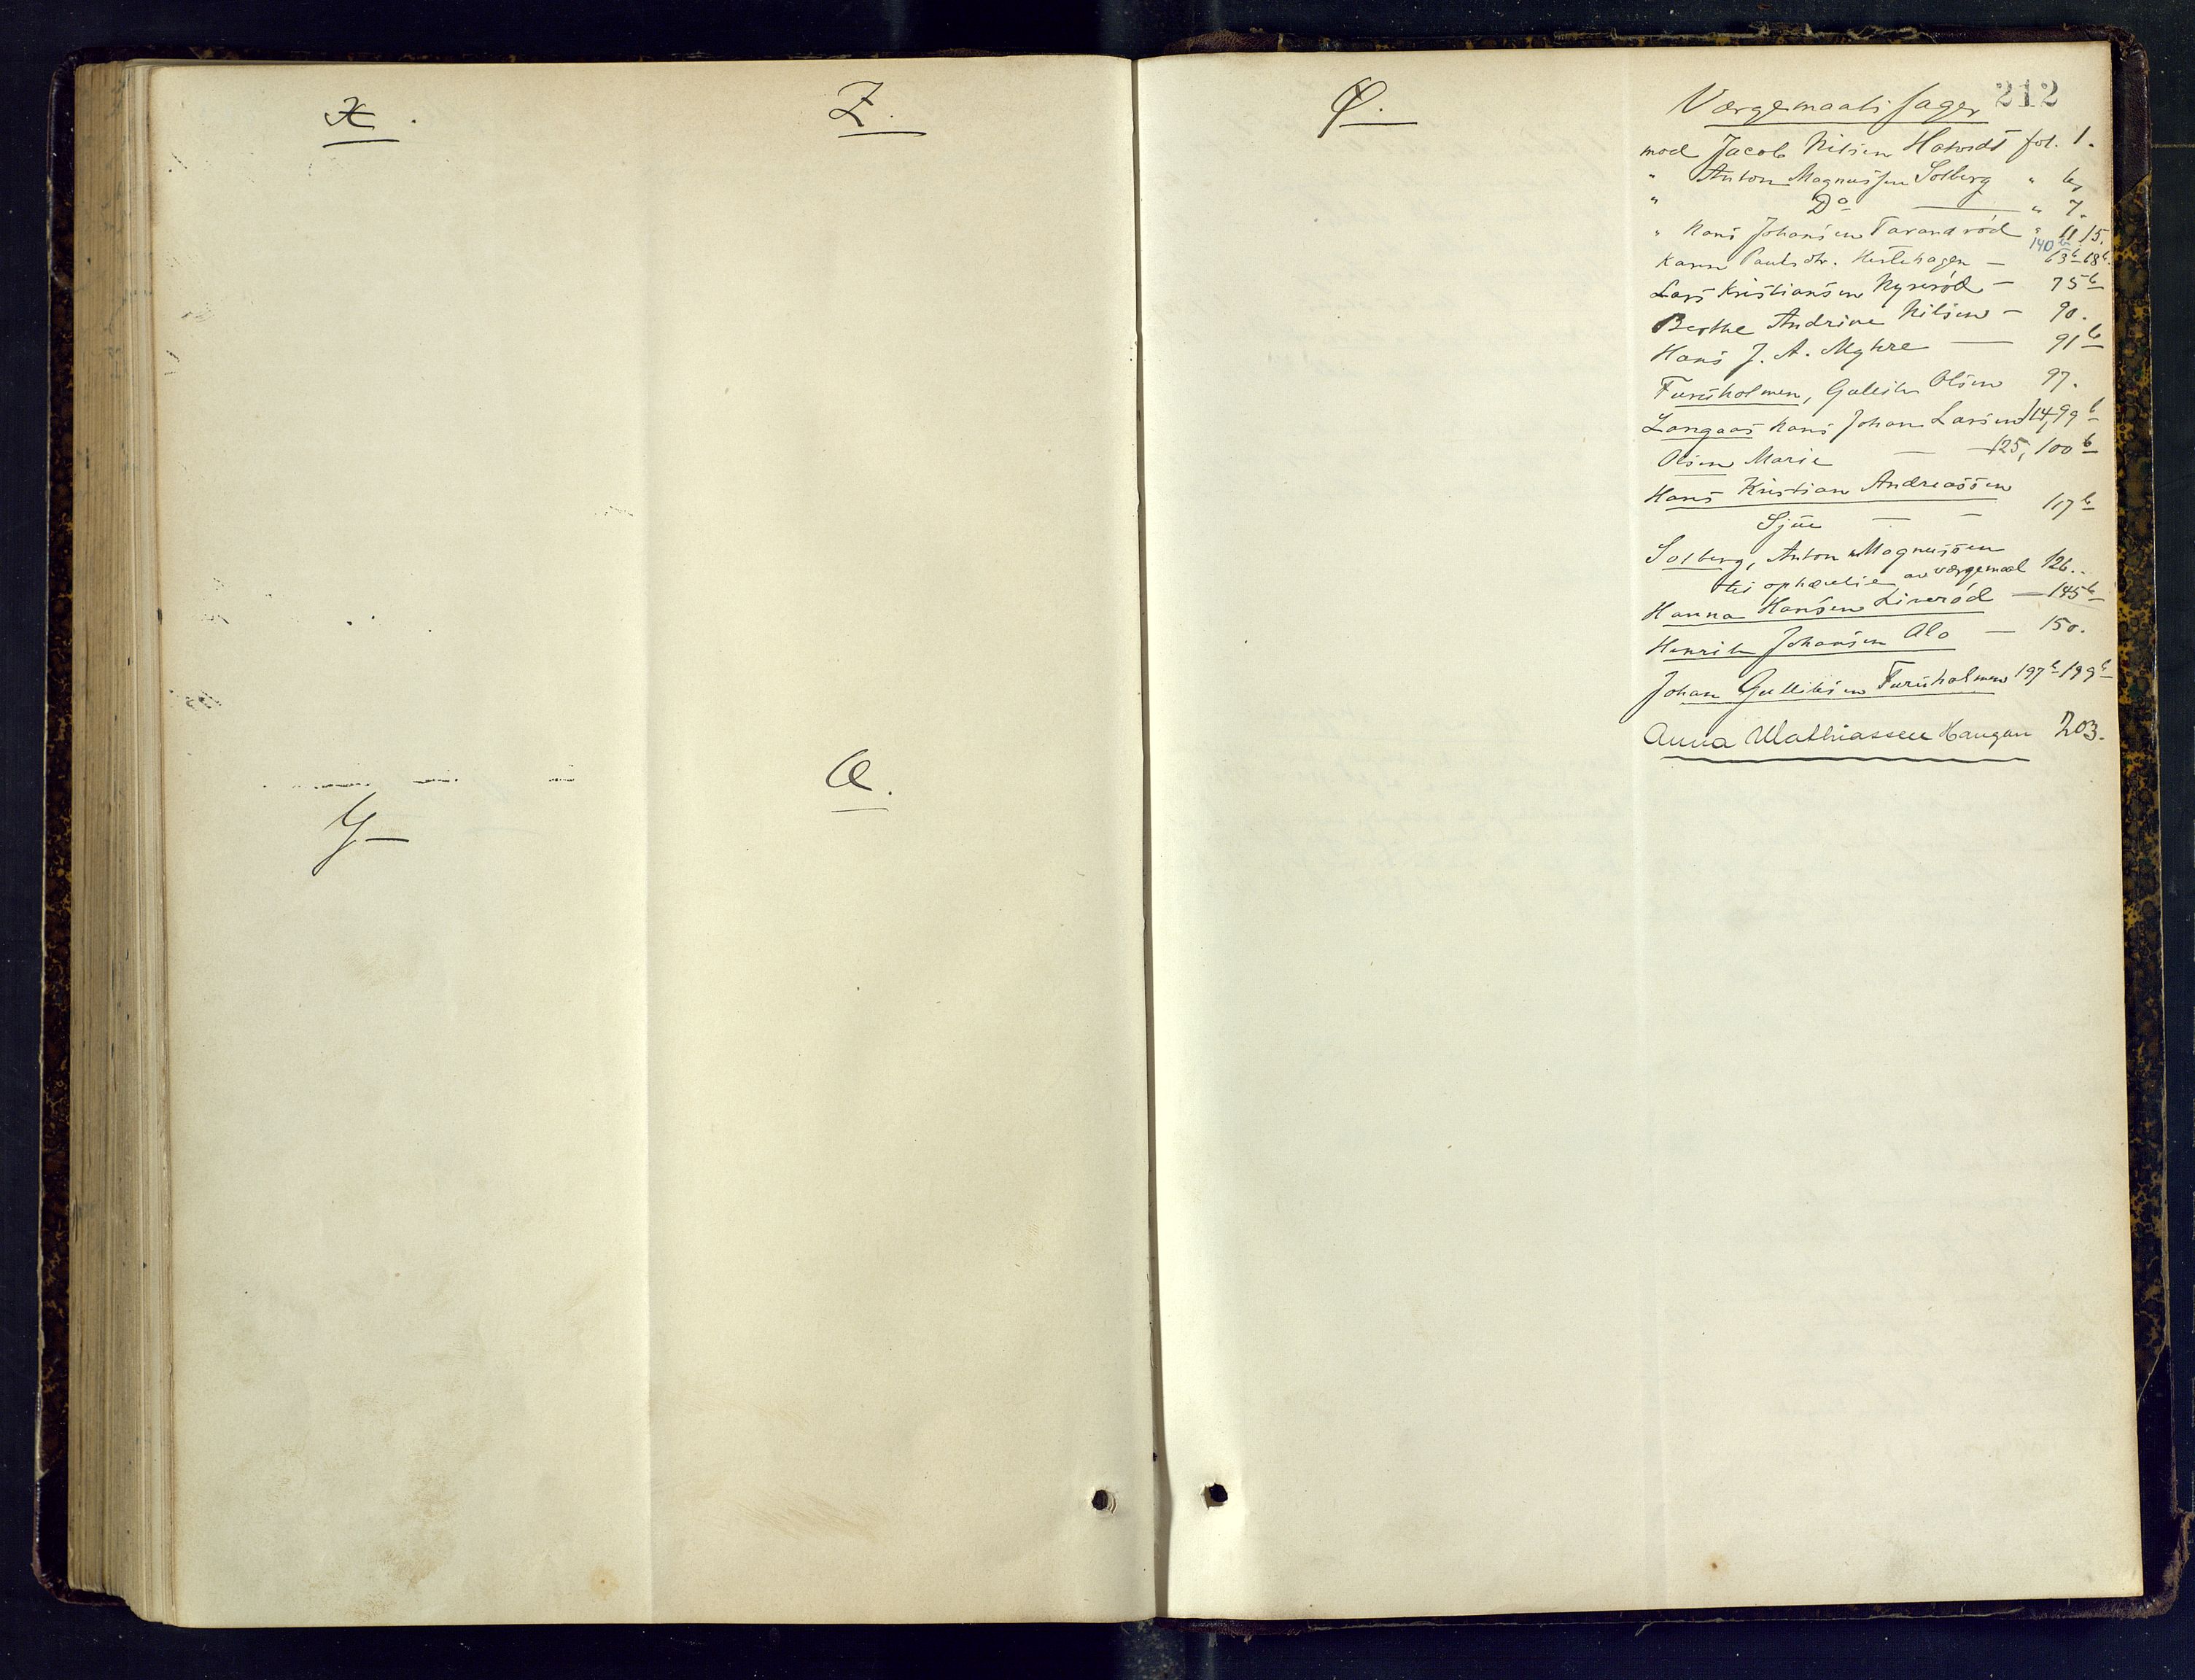 X.
Y
Z.
Æ.
Ø.
212
Værgemaals sager
mod Jacob Nilsen Hatvedt fol. 1.
" Anton Magnussen Solberg "
" Do " 7.
" Hans Johansen Tarandrød " 11, 15.
140 b.
Karen Paulsdtr. Hestehagen — 63b 68b
Lars Kristiansen Nyrerød — 75b
Berthe Andrine Nilsen — 90.
Hans J. A. Myhre — 91b
Furuholmen, Gullik Olsen 97.
Langaas Hans Johan Larsen 14, 99b
Olsen Marie — 125, 100b
Hans Kristian Andreassen
Sjue — — 117b
Solberg, Anton Magnussen
til ophævelse av værgemaal 126.
Hanna Hansen Liverød — 145b
Henrik Johansen Alo — 150.
Johan Gulliksen Furuholmen 197b 199b
Anna Mathiassen Haugan 203.